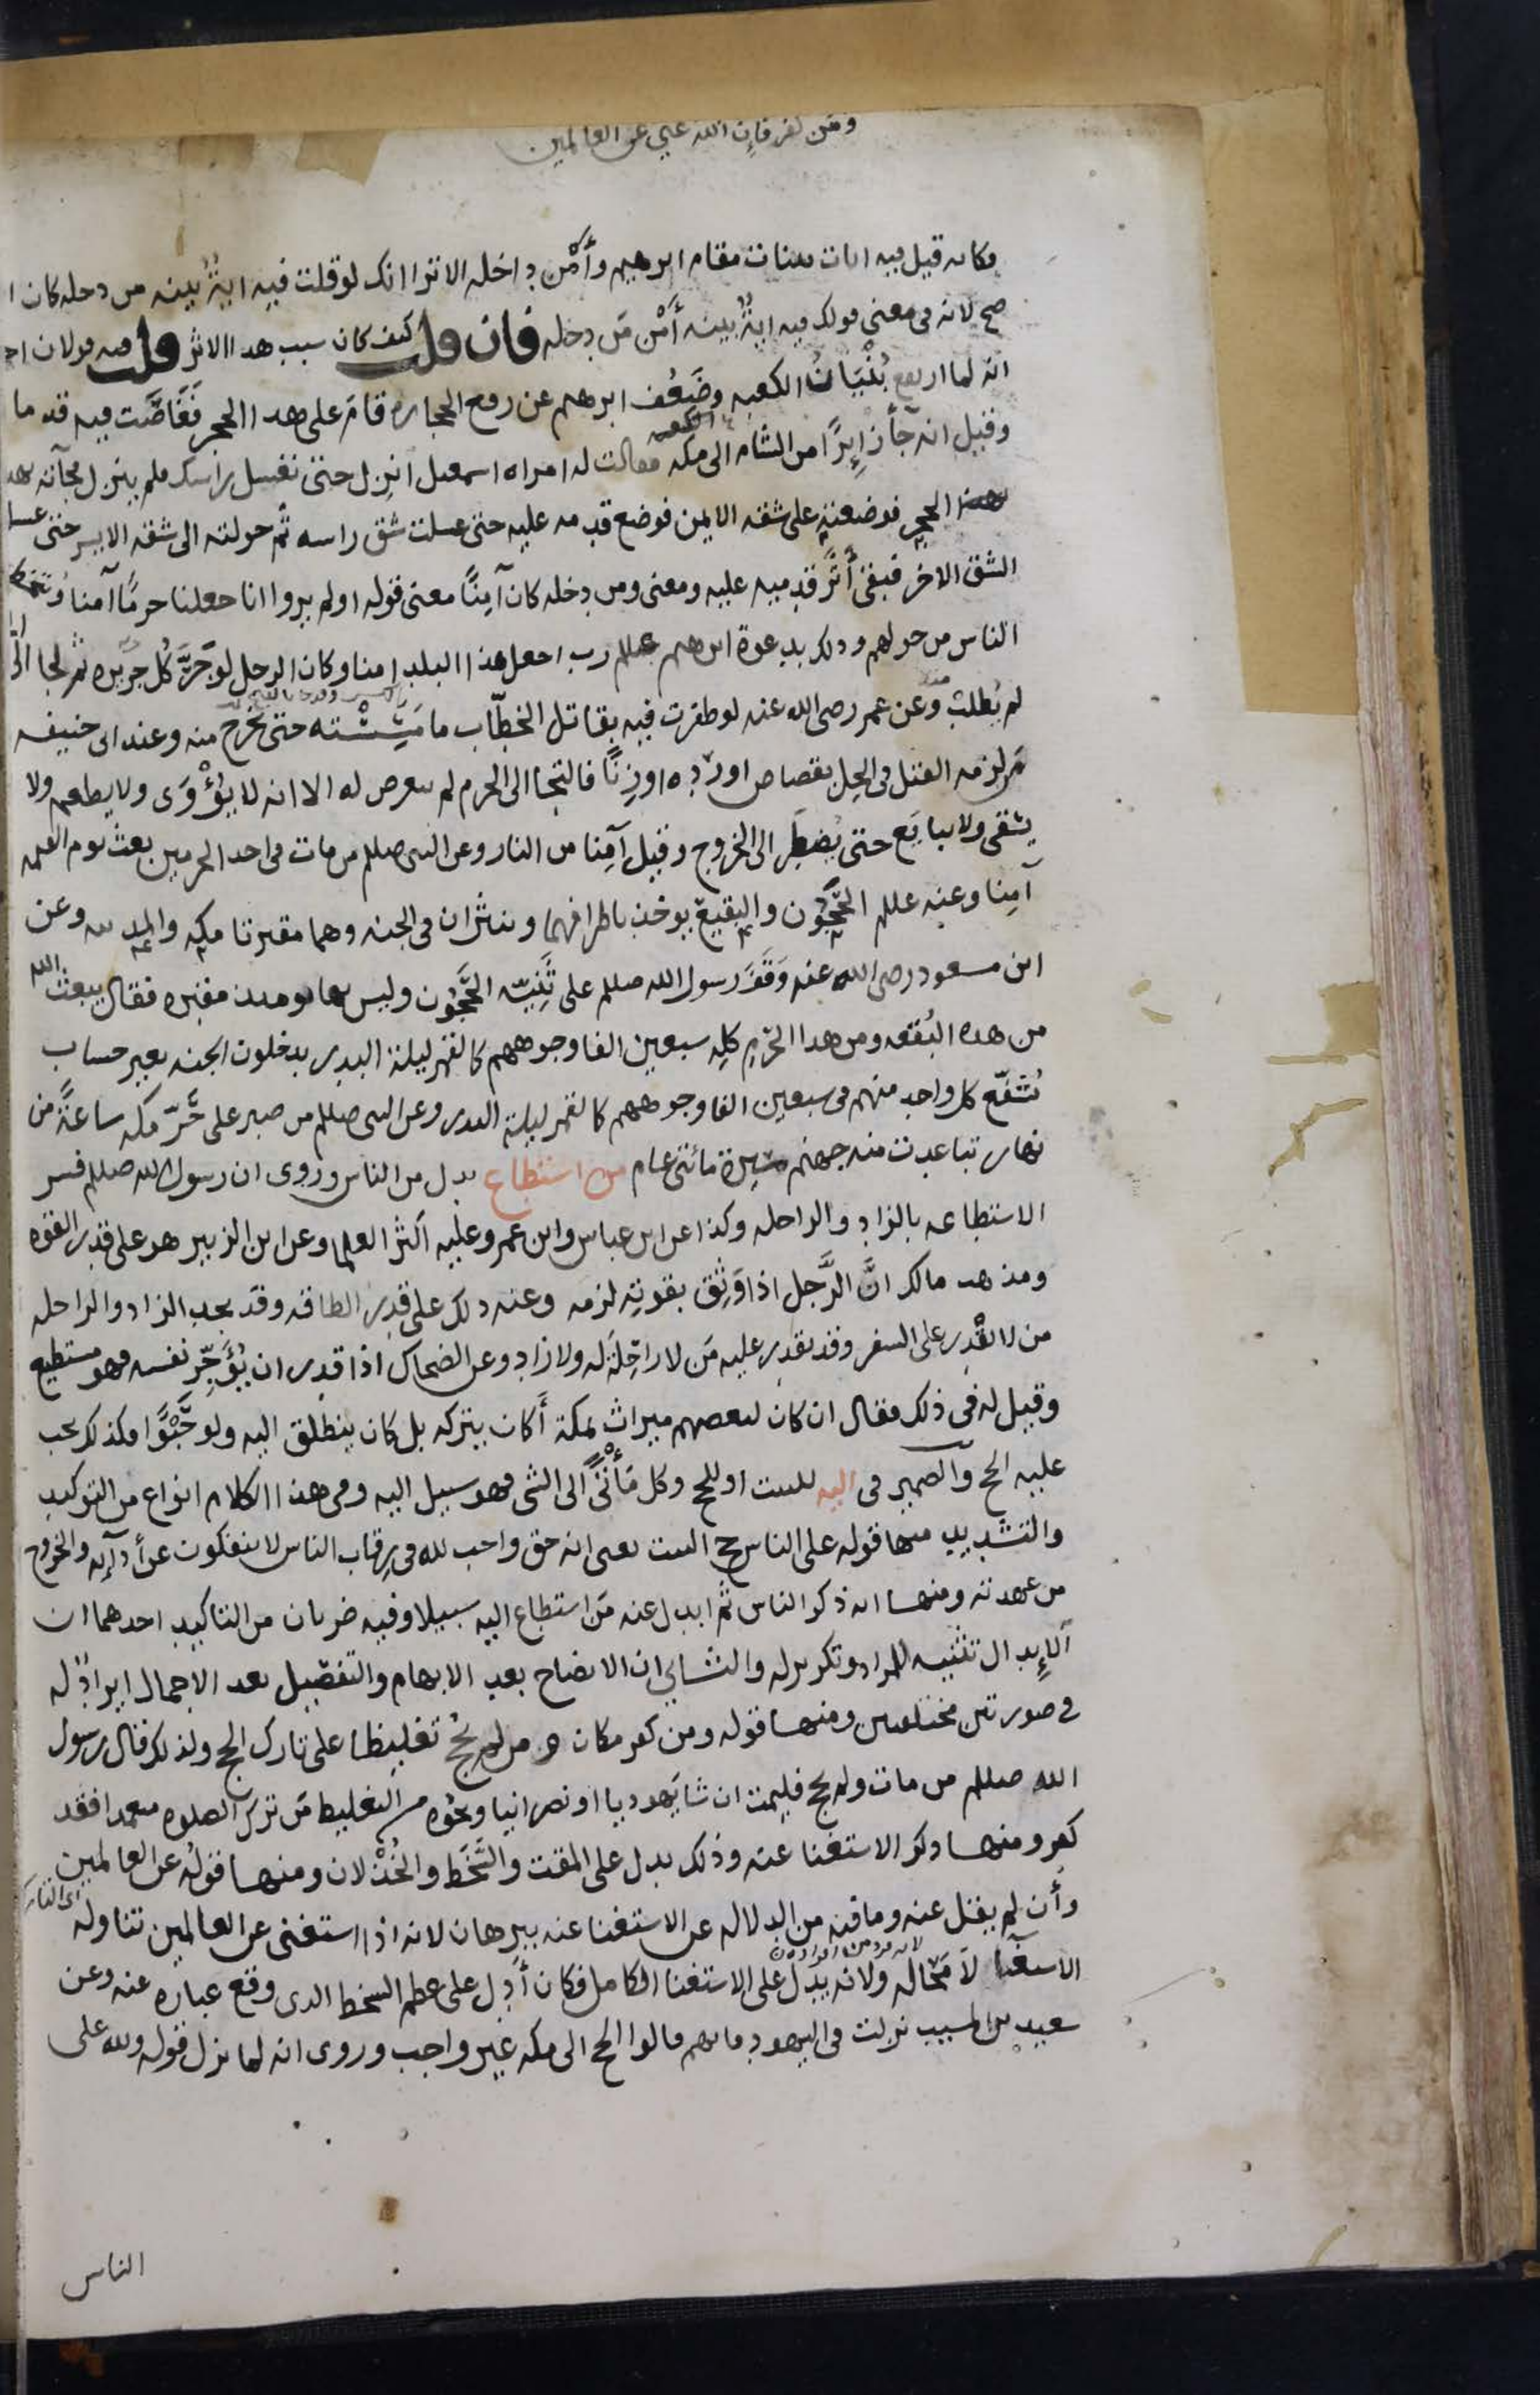 ومن كفر فإن الله غني عن العالمين
فكانه قيل فيه ايات بينات مقام ابرهيم وأمْن داخله الا ترا انك لو قلت فيه ايةٌ بينه من دخله كان ا
صح لانه في معنى قولك فيه ايةٌ بينه أمْن مَن دخله فان قلت كيف كان سبب هدا الاثر قلت فيه قولان ا
انه لما ارتفع بُنْيَانُ الكعبه وضَعُف ابرهيم عن رفع الحجاره قامَ على هدا الحجر فَغَاصَت فيه قدما
وقيل انه جآ زايرًا من الشام الى مكه فقالت له امراه اسمعيل انزل حتى نغسل راسك فلم ينزل فجآته بهد
الحجر فوضعته على شقه الايمن فوضع قدمه عليه حتى غسلت شق راسه ثم حولته الى شقه الايسر حتى غسل
الشق الاخر فبقى أثَر قدميه عليه ومعنى ومن دخله كان آمِنًا معنى قوله اولم يروا انا جعلنا حرمًا آمنا وتخطف
الناس من حولهم ودلك بدعوة ابرهيم عللم رب اجعل هذا البلد امنا وكان الرجل لو جَرَّ كُل جريره ثم لجا الى
لم يُطلب وعن عمر رضى الله عنه لو ظفرت فيه بقاتل الخطّاب ما مَسِسْته حتى يخرج منه وعند ابى حنيفه
مَن لزمه القتل في الحِل بقصاص او رده او زنًا فالتجا الى الحرم لم يتعرض له الا انه لا يُؤْوَى ولا يطعم ولا
يسقى ولا يبايَع حتى يُضطر الى الخروج وقيل آمِنا من النار وعن النبى صللم من مات في احد الحرمين بعث يوم القيمه
آمِنا وعنه عللم الحَجُون والبقيع يوخذ باطرافهما وينثران في الجنه وهما مقبرتا مكه والمدينه وعن
ابن مسعود رضى الله عنه وَقَفَ رسول الله صللم على ثَنِيّه الحَجُون وليس بها يومئذ مقبره فقال يبعث الله
من هده البُقعه ومن هدا الحَرَمِ كلِه سبعين الفا وجوههم كالقمر ليلة البدر يدخلون الجنه بغير حساب
يُشفّع كل واحد منهم في سبعين الفا وجوههم كالقمر ليلة البدر وعن النبى صللم من صبر على حَرّ مكه ساعةً من
نهار تباعدت منه جهنم مسيرة مائتى عام من استطاع بدل من الناس وروى ان رسول الله صللم فسر
الاستطاعه بالزاد والراحله وكذا عن ابن عباس وابن عمر وعليه اكثر العلما وعن ابن الزبير هو على قدر القوه
ومذهب مالك انَّ الرَّجل اذا وَثِق بقوتِه لزمه وعنه دلك على قدر الطاقه وقد يجد الزاد والراحله
من لا يقْدِر على السفر وقد يقدِر عليه مَن لا راحلةَ له ولا زاد وعن الضحاك اذا قدر ان يُؤَجِّر نفسه فهو مستطيع
وقيل له في ذلك فقال ان كان لبعضهم ميراث بمكة أكان يتركه بل كان ينطلق اليه ولو حَبْوًا فكذلك يجب
عليه الحج والضمير في اليه للبيت او للحج وكل مَأْتًى الى الشى فهو سبيل اليه وفى هذا الكلام انواع من التوكيد
والتشديد منها قوله على الناس حج البيت يعنى انه حق واجب لله في رقاب الناس لا ينفكون عن أدآئه والخروج
من عهدته ومنها انه ذكر الناس ثم ابدل عنه مَن استطاع اليه سبيلا وفيه ضربان من التاكيد احدهما ان
الإبدال تثنيه للمراد وتكرير له والثانى ان الايضاح بعد الابهام والتفصيل بعد الاجمال ايرادٌ له
في صورتين مختلفتين ومنها قوله ومن كفر مكان ومن لم يحجُ تغليظا على تارك الحج ولذلك قال رسول
الله صللم من مات ولم يحج فليمت ان شا يَهوديا او نصرانيا ونحوُه من التغليظ مَن ترك الصلوه متعمدا فقد
كفر ومنها ذكر الاستغنا عنه وذلك يدل على المقت والسَّخَط والخُذْلان ومنها قولُه عن العالمين
وأن لم يقل عنه وما فيه من الدلاله عن الاستغنا عنه ببرهان لانه اذا استغنى عن العالمين تناوله
الاستغنا لا مَحَاله ولانه يدل على الاستغنا الكامل فكان أدل على عظم السخط الدى وقع عباره عنه وعن
سعيد بن المسيب نزلت في اليهود فانهم قالوا الحج الى مكه غير واجب وروى انه لما نزل قوله ولله على
الناس